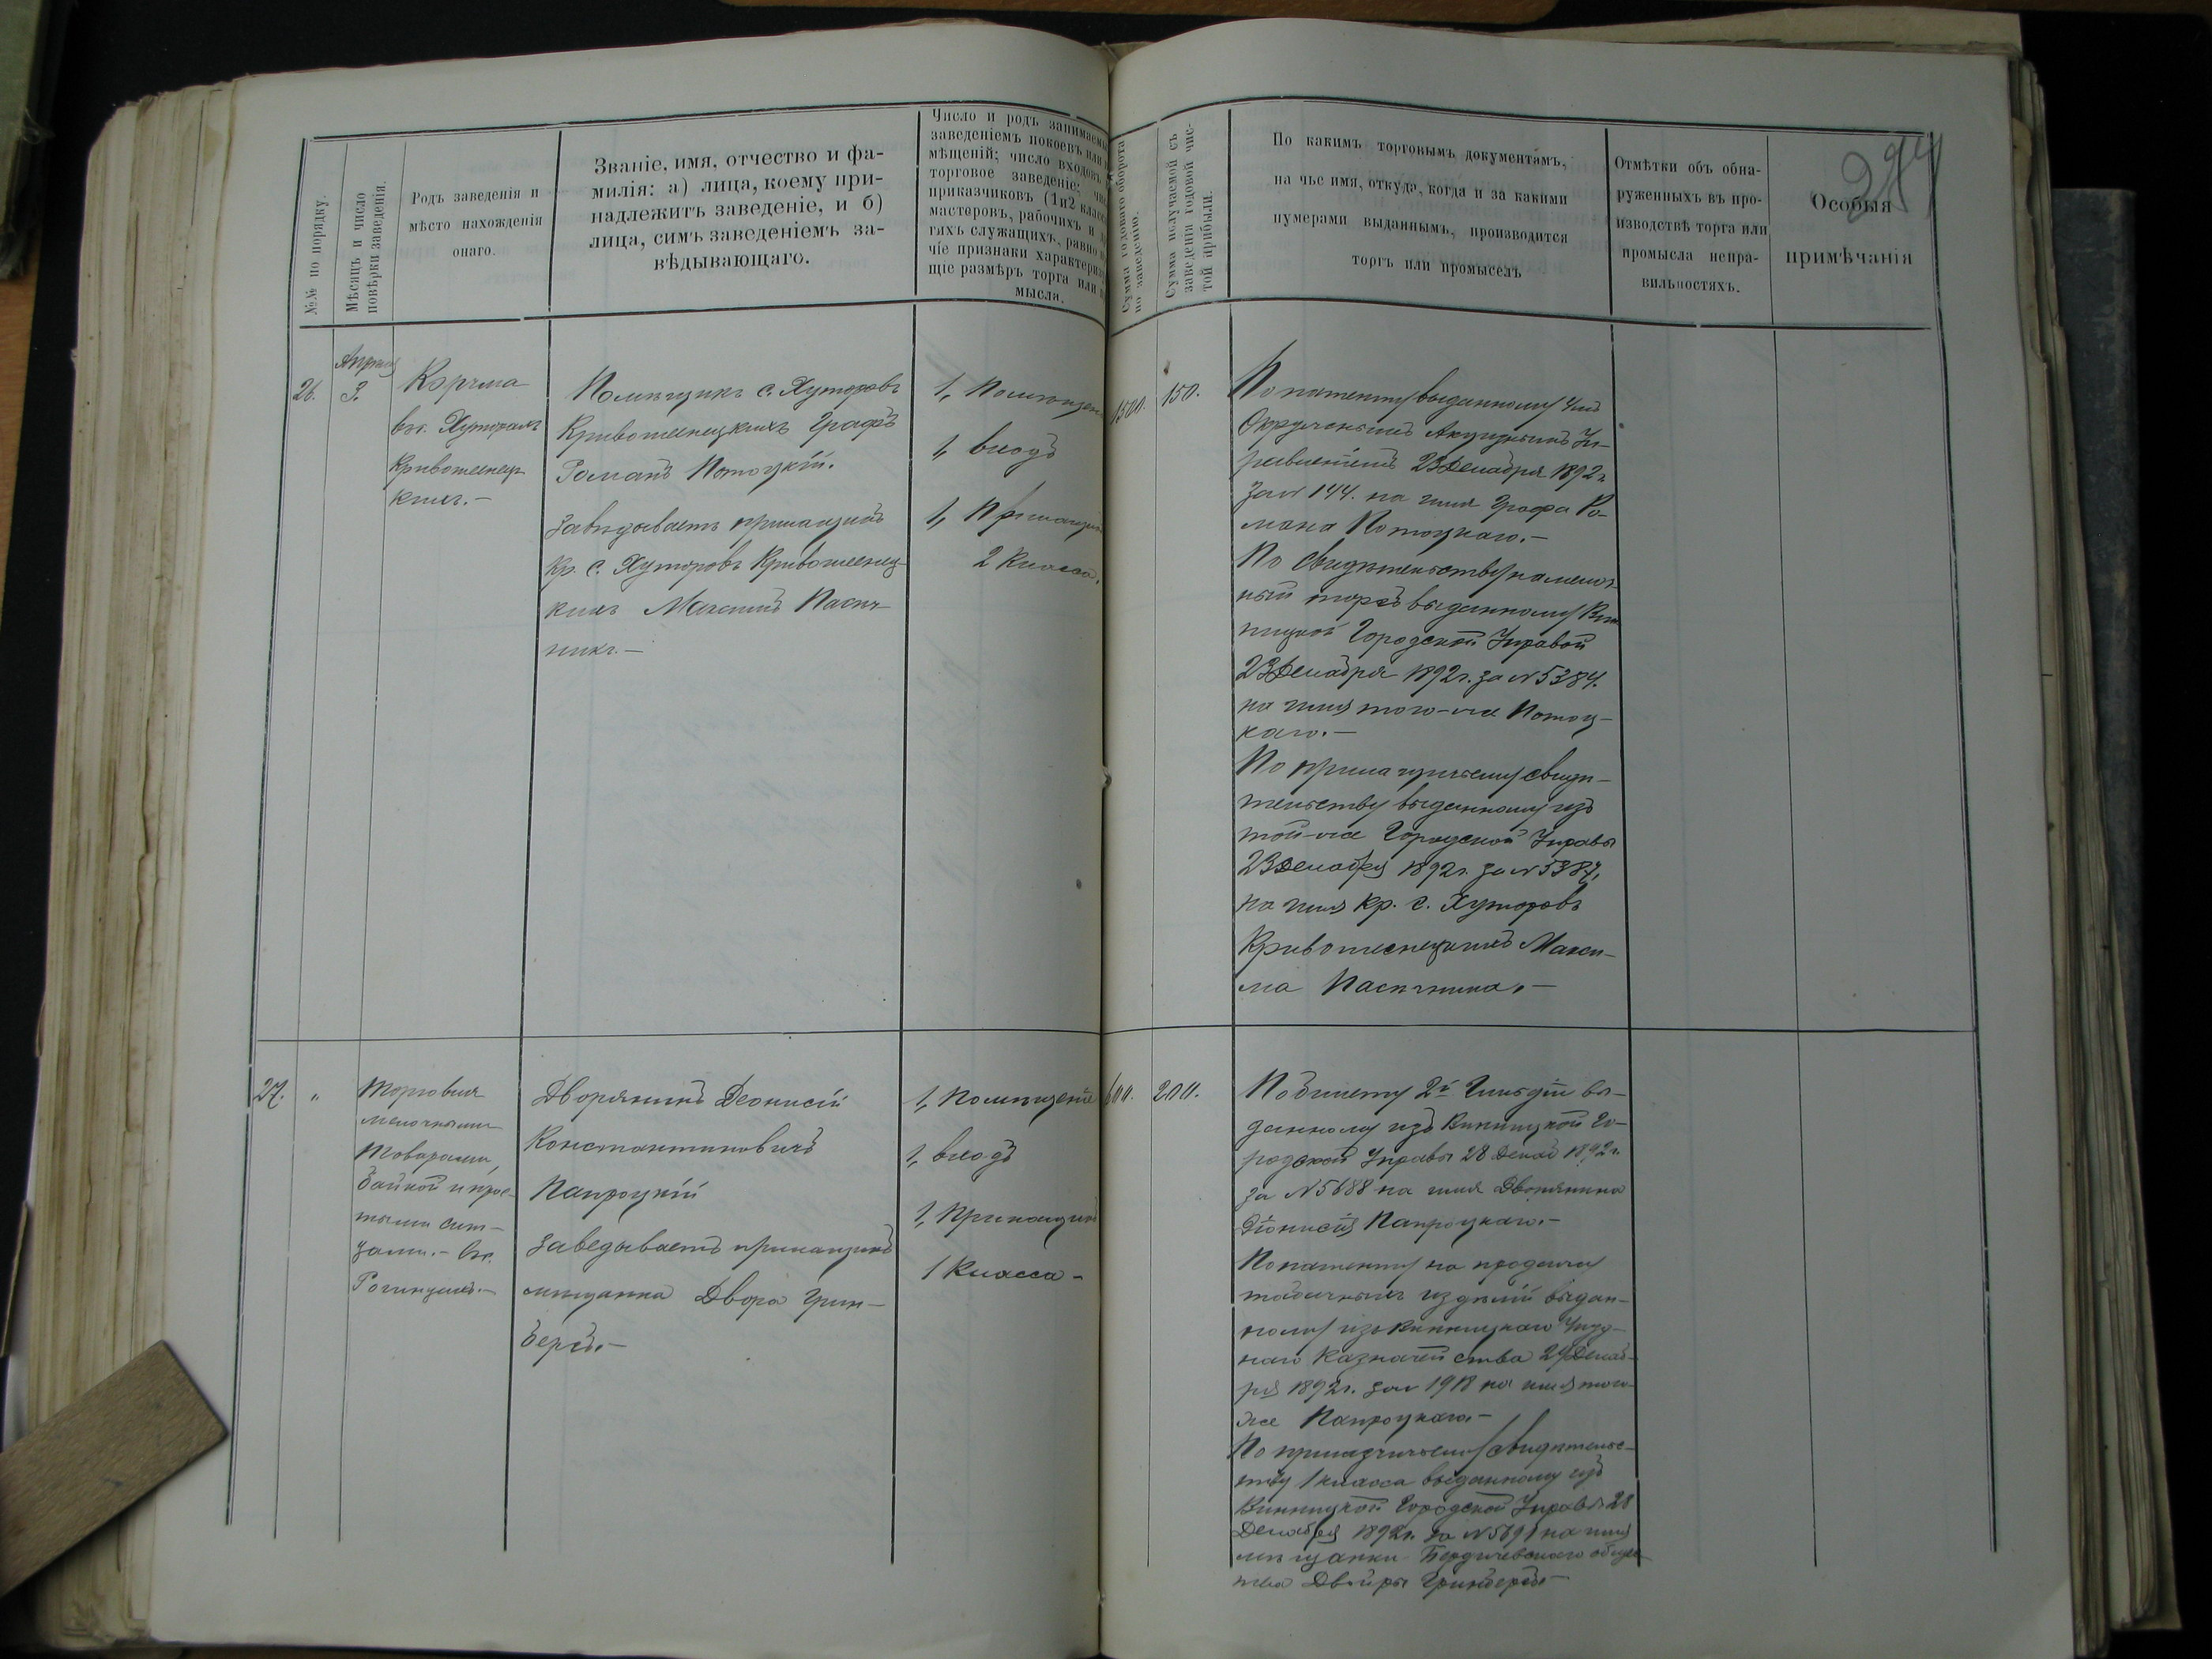 284
№№ по порядку.
Мѣсяцъ и число
повѣрки заведенія.
Родъ заведенія и
мѣсто нахожденія
онаго.
Званіе, имя, отчество и фа-
милія: а) лица, коему при-
надлежитъ заведеніе, и б)
лица, симъ заведеніемъ за-
вѣдывающаго.
Число и родъ занимаем
заведеніемъ покоевъ или
мѣщеній; число входовъ
торговое заведеніе; чис
приказчиковъ (1 и 2 класс
мастеровъ, рабочихъ и
гихъ служащихъ, равно
чіе признаки характериз
щіе размѣръ торга или
мысла.
Сумма годоваго оборота
по заведенію.
Сумма получаемой съ
заведенія годовой чис-
той прибыли.
По какимъ торговымъ документамъ,
на чье имя, откуда, когда и за какими
нумерами выданнымъ, производится
торгъ или промыселъ
Отмѣтки объ обна-
руженныхъ въ про-
изводствѣ торга или
промысла непра-
вильностяхъ.
Особыя
примѣчанія
26.
Апрѣля
3.
Корчма
въ с. Хуторахъ
Кривошеинец-
кихъ.—
Помѣщикъ с. Хуторовъ
Кривошеинецкихъ Графъ
Романъ Потоцкій.
Завѣдываетъ прикащикъ
Кр. с. Хуторовъ Кривошеинец-
кихъ Максимъ Пасѣч-
никъ.—
1, Помѣщен
1, входъ
1, Прикащик
2 Класса.
1500.
150.
По патенту выданному
Округомъ Акцизнымъ Уп-
равленіемъ 23 Декабря 1892 г.
за № 144. на имя Графа Ро-
мана Потоцкаго.—
По свидѣтельству на мелоч-
ный торгъ выданному Вин
ницкой Городской Управой
23 Декабря 1892 г. за № 5384.
на имя того-же Потоц-
каго.—
По прикащичьему свидѣ-
тельству выданному изъ
той-же Городской Управы
23 Декабря 1892 г. за № 5387,
на имя кр. с. Хуторовъ
Кривошеинецкихъ Макси-
ма Пасѣчника.—
27.
"
Торговля
мелочными
товарами,
байкой и прос-
тыми сит-
цами.— въ с.
Рогинцахъ.—
Дворянинъ Деонисій
Константиновичъ
Папроцкій
Заведываетъ прикащикъ
мѣщанка Двора Грин-
бергъ.—
1, Помѣщеніе
1, входъ
1, Прикащик
1 Класса-
600.
200.
По билету 2й Гильдіи вы-
данному изъ Винницкой Го-
родской Управы 28 Декаб 1892 г.
за № 5688 на имя Дворянина
Діонисія Папроцкаго.—
По патенту на продажу
табачныхъ издѣлій выдан-
ному изъ Винницкаго Уѣзд-
наго Казначейства 29 Декаб-
ря 1892 г. за № 1918 на имя того-
же Папроцкаго.—
По прикащичьему свидѣтельс-
тву 1 класса выданному изъ
Винницкой Городской Управы 28
Декабря 1892 г. за № 5691 на имя
мѣщанки Бердичевскаго общес-
тва Двойры Гринбергъ.—